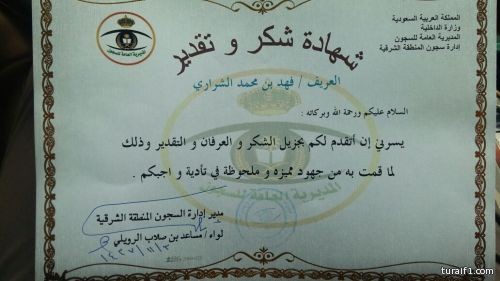 المملكة العربية السعودية
وزارة الداخلية
المديرية العامة للسجون
إدارة سجون المنطقة الشرقية
المديرية العامة للسجون
شهادة شكر و تقدير
العريف / فهد بن محمد الشراري
السلام عليكم ورحمة الله وبركاته :
يسرني إن أتقدم لكم بجزيل الشكر و العرفان و التقدير وذلك
لما قمت به من جهود مميزه و ملحوظة في تأدية و اجبكم .
المديرية العامة للسجون
مدير إدارة السجون المنطقة الشرقية
لواء / مساعد بن صلاب الرويلي
turaif1.com